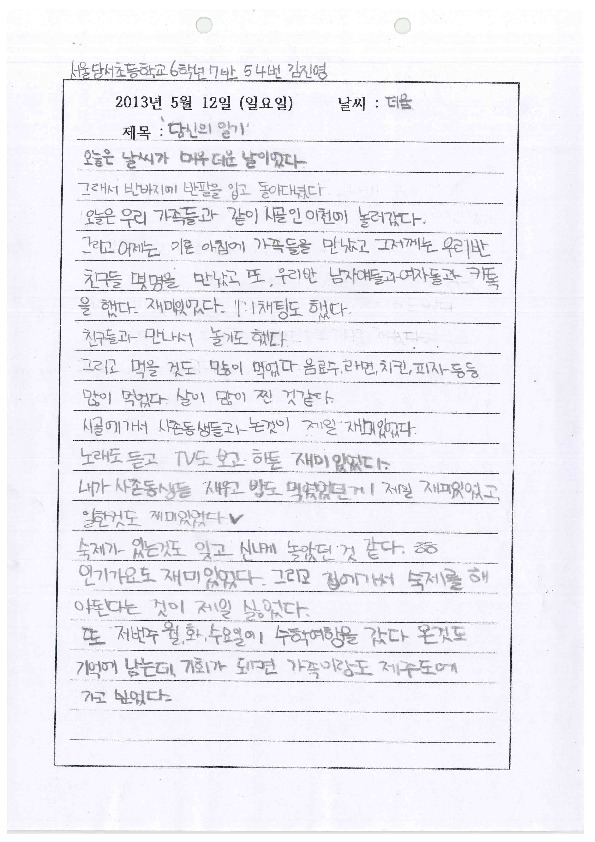 서울당서초등학교 6학년 7반 54번 김진영
2013년 5월 12일 (일요일) 날씨 : 더움
제목 : '당신의 일기'
오늘은 날씨가 매우 더운 날이었다.
그래서 반바지에 반팔을 입고 돌아다녔다.
오늘은 우리 가족들과 같이 시골인 이천에 놀러갔다.
그리고 어제는 이른 아침에 가족들을 만났고 그저께는 우리반
친구들 몇명을 만났고 또, 우리반 남자애들과 여자들과 카톡
을 했다. 재미있었다. 1:1채팅도 했다.
친구들과 만나서 놀기도 했다.
그리고 먹을 것도 많이 먹었다 음료수,라면,치킨,피자 등등
많이 먹었다 살이 많이 찐 것같다.
시골에가서 사촌동생들과 논것이 제일 재미있었다.
노래도 듣고 TV도 보고 하튼 재미있었다.
내가 사촌동생들 재우고 밥도 먹였었던게 제일 재미있었고,
일한것도 재미있었다
숙제가 있는것도 잊고 신나게 놀았던 것 같다. ㅎㅎ
인기가요도 재미있었다. 그리고 집에가서 숙제를 해
야된다는 것이 제일 싫었다.
또 저번주 월,화,수요일에 수학여행을 갔다 온것도
기억에 남는데, 기회가 되면 가족이랑도 제주도에
가고 싶었다.